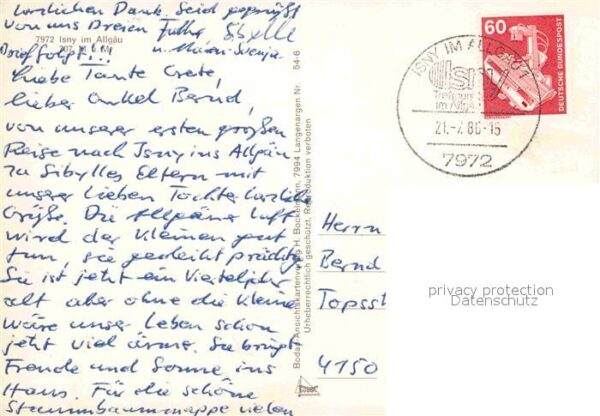 herzlichen Dank. Seid gegrüßt
von uns Dreien Sibylle
7972 Isny im Allgäu
707 M ü M
Brief folgt!!! u. Maren-Svenja
Liebe Tante Grete,
lieber Onkel Bernd,
von unserer ersten großen
Reise nach Isny ins Allgäu
zu Sibylles Eltern mit
unserer lieben Tochter herzliche
Grüße. Die Allgäuer Luft
wird der Kleinen gut
tun, sie gedeiht prächtig
Sie ist jetzt ein Vierteljahr
alt aber ohne die Kleine
wäre unser Leben schon
jetzt viel ärmer. Sie bringt
Freude und Sonne ins
Haus. Für die schöne
Stammbaummappe vielen
54-6
Bodan-Ansichtskartenverlag H. Bockelmann, 7994 Langenargen Nr.
Urheberrechtlich geschützt, Reproduktion verboten
60
DEUTSCHE BUNDESPOST
ISNY IM ALLGÄU 1
Isny
im Allgäu
21.-7.86-15
7972
Herrn
Bernd
Topsst
4150
privacy protection
Datenschutz